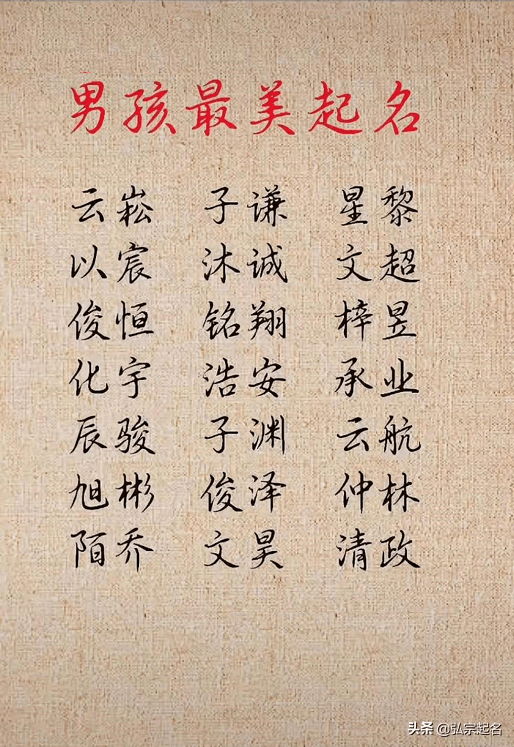 男孩最美起名
云崧 子谦 星黎
以宸 沐诚 文超
俊恒 铭翔 梓昱
化宇 浩安 承业
辰骏 子渊 云航
旭彬 俊泽 仲林
陌乔 文昊 清政
头条 @弘宗起名